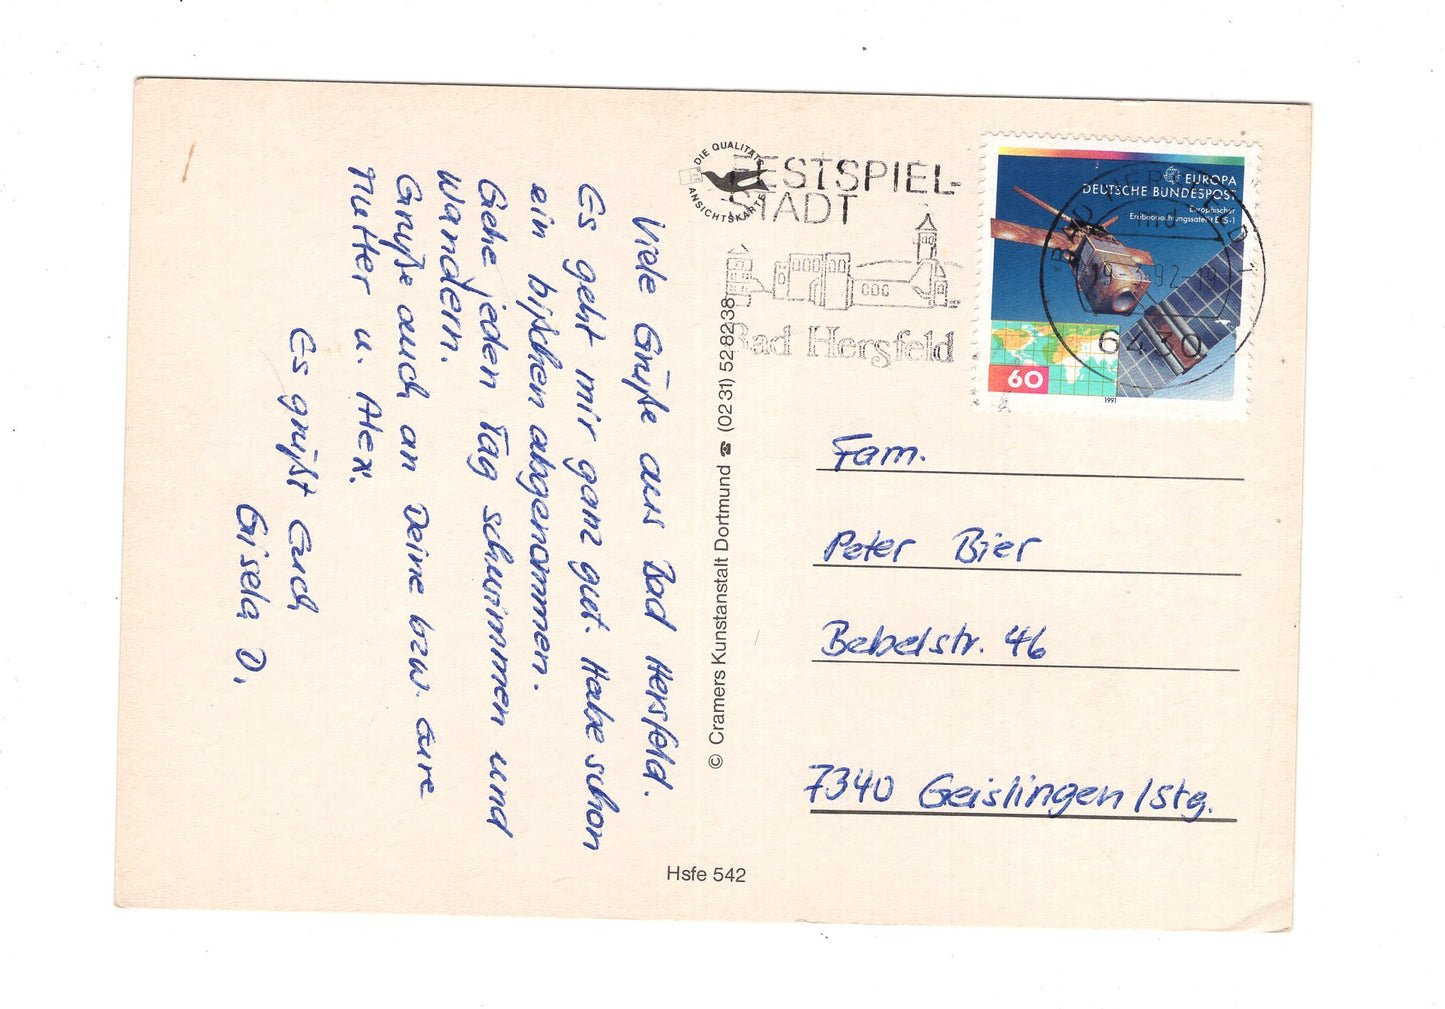 Viele Grüße aus Bad Hersfeld.
Es geht mir ganz gut. Habe schon
ein bißchen abgenommen.
Gehe jeden Tag schwimmen und
wandern.
Grüße auch an Deine bzw. eure
Mutter u. Alex.
Es grüßt euch
Gisela D.
DIE QUALITÄTS
ANSICHTSKARTE
FESTSPIEL-
STADT
Bad Hersfeld
EUROPA
DEUTSCHE BUNDESPOST
Europäischer
Erdbeobachtungssatellit ERS-1
60
1991
BAD HERSFELD 1
19.-3.92-19
6430
© Cramers Kunstanstalt Dortmund ☎ (02 31) 52 82 38
Fam.
Peter Bier
Bebelstr. 46
7340 Geislingen/Stg.
Hsfe 542